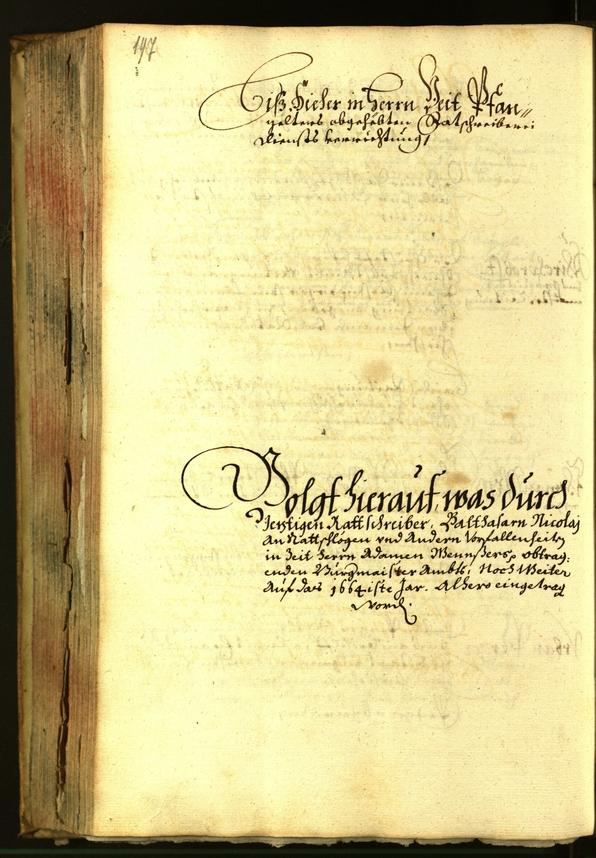 147
Biß hieher in Herrn Veit Pfan„
gelters abgehebten Ratschreiberei
diensts verrichtung,
Volgt hierauf, was durch
Jeztigen Rattschreiber, Balthasarn Nicolaj
an Rattschlögen vnd andern Vorfallenheiten
in Zeit Herrn Adamen obtrag:
enden Burgmaister Ambts, noch Weiter
auf das 1664.iste Jar. Alhero eingetrag
word.